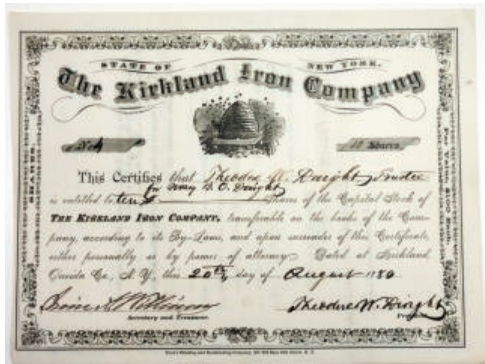 STATE OF NEW YORK.
The Kirkland Iron Company
No. 4 10 Shares
SHARES
Par Value $100 Each.
This Certifies that Theodore W. Dwight, Trustee
for Mary B. O. Dwight
is entitled to ten Shares of the Capital Stock of
THE KIRKLAND IRON COMPANY, transferable on the books of the Com-
pany, according to its By-Laws, and upon surrender of this Certificate,
either personally or by power of attorney. Dated at Kirkland,
Oneida Co., N.Y., this 20th, day of August 1880
Theodore W. Dwight
Secretary and Treasurer.